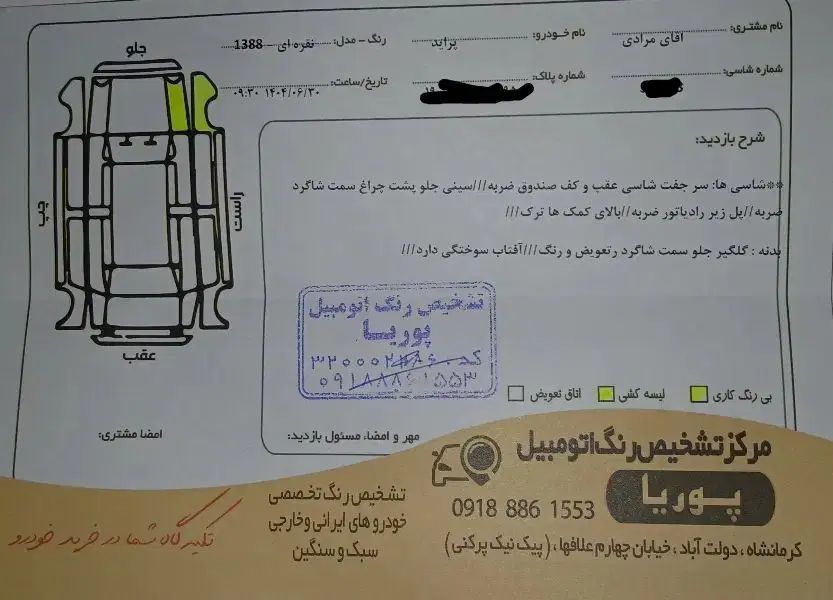 نام مشتری: آقای مرادی نام خودرو: پراید رنگ - مدل: نقره ای - 1388
شماره شاسی: شماره پلاک: تاریخ/ساعت: ۱۴۰۴/۰۶/۳۰ ۰۹:۳۰
جلو
چپ
راست
عقب
شرح بازدید:
**شاسی ها: سر جفت شاسی عقب و کف صندوق ضربه///سینی جلو پشت چراغ سمت شاگرد
ضربه//پل زیر رادیاتور ضربه//بالای کمک ها ترک///
بدنه : گلگیر جلو سمت شاگرد رتعویض و رنگ///آفتاب سوختگی دارد///
تشخیص رنگ اتومبیل
پوریا
بی رنگ کاری لیسه کشی اتاق تعویض
مهر و امضاء مسئول بازدید:
امضا مشتری:
مرکز تشخیص رنگ اتومبیل
پوریا
0918 886 1553
کرمانشاه ، دولت آباد ، خیابان چهارم علافها ، (پیک نیک پرکنی)
تشخیص رنگ تخصصی
خودرو های ایرانی وخارجی
سبک و سنگین
تکیه گاه شما در خرید خودرو